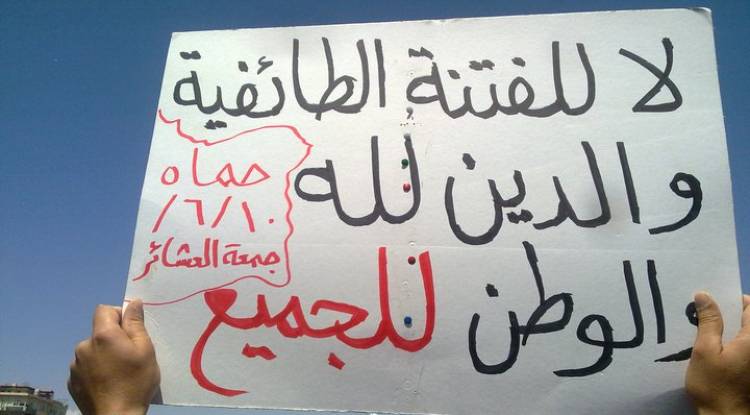 لا للفتنة الطائفية
والدين لله
والوطن للجميع
حماه
١٠/٦/
جمعة العشائر